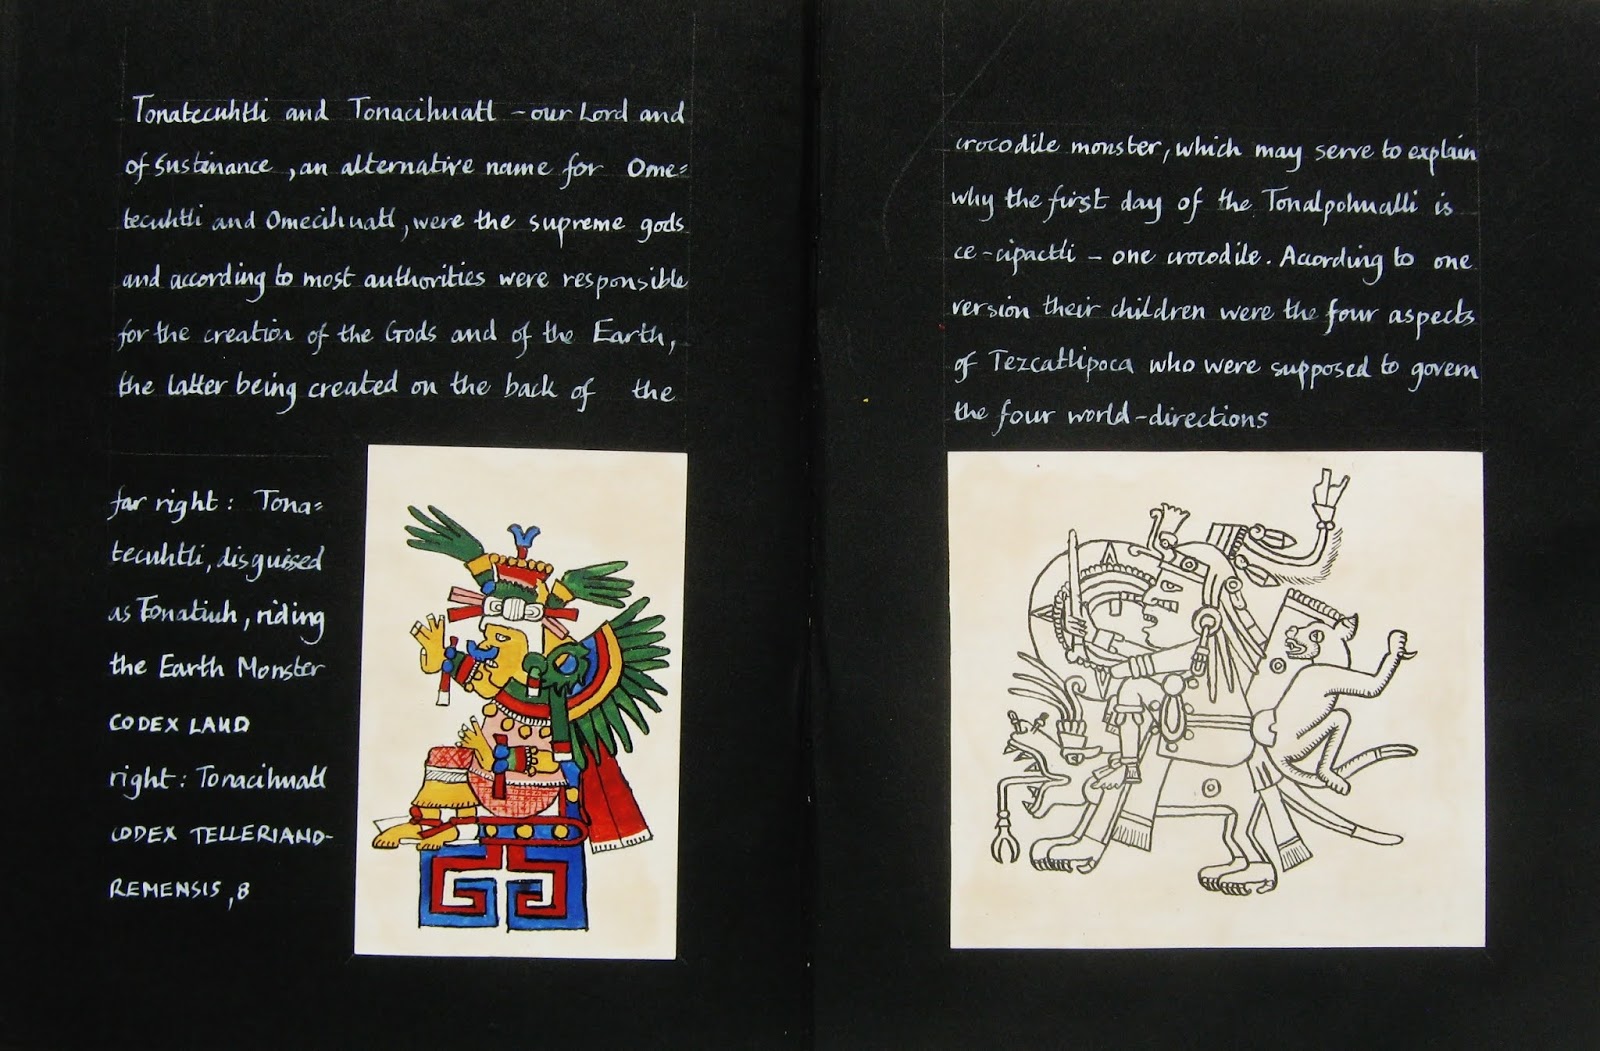 Tonatecuhtli and Tonacihuatl - our Lord and
of Sustinance, an alternative name for Ome=
tecuhtli and Omecihuatl, were the supreme gods
and according to most authorities were responsible
for the creation of the Gods and of the Earth,
the latter being created on the back of the
far right: Tona=
tecuhtli, disguised
as Tonatiuh, riding
the Earth Monster
CODEX LAUD
right: Tonacihuatl
CODEX TELLERIANO-
REMENSIS, 8
crocodile monster, which may serve to explain
why the first day of the Tonalpohualli is
ce-cipactli - one crocodile. According to one
version their children were the four aspects
of Tezcatlipoca who were supposed to govern
the four world-directions